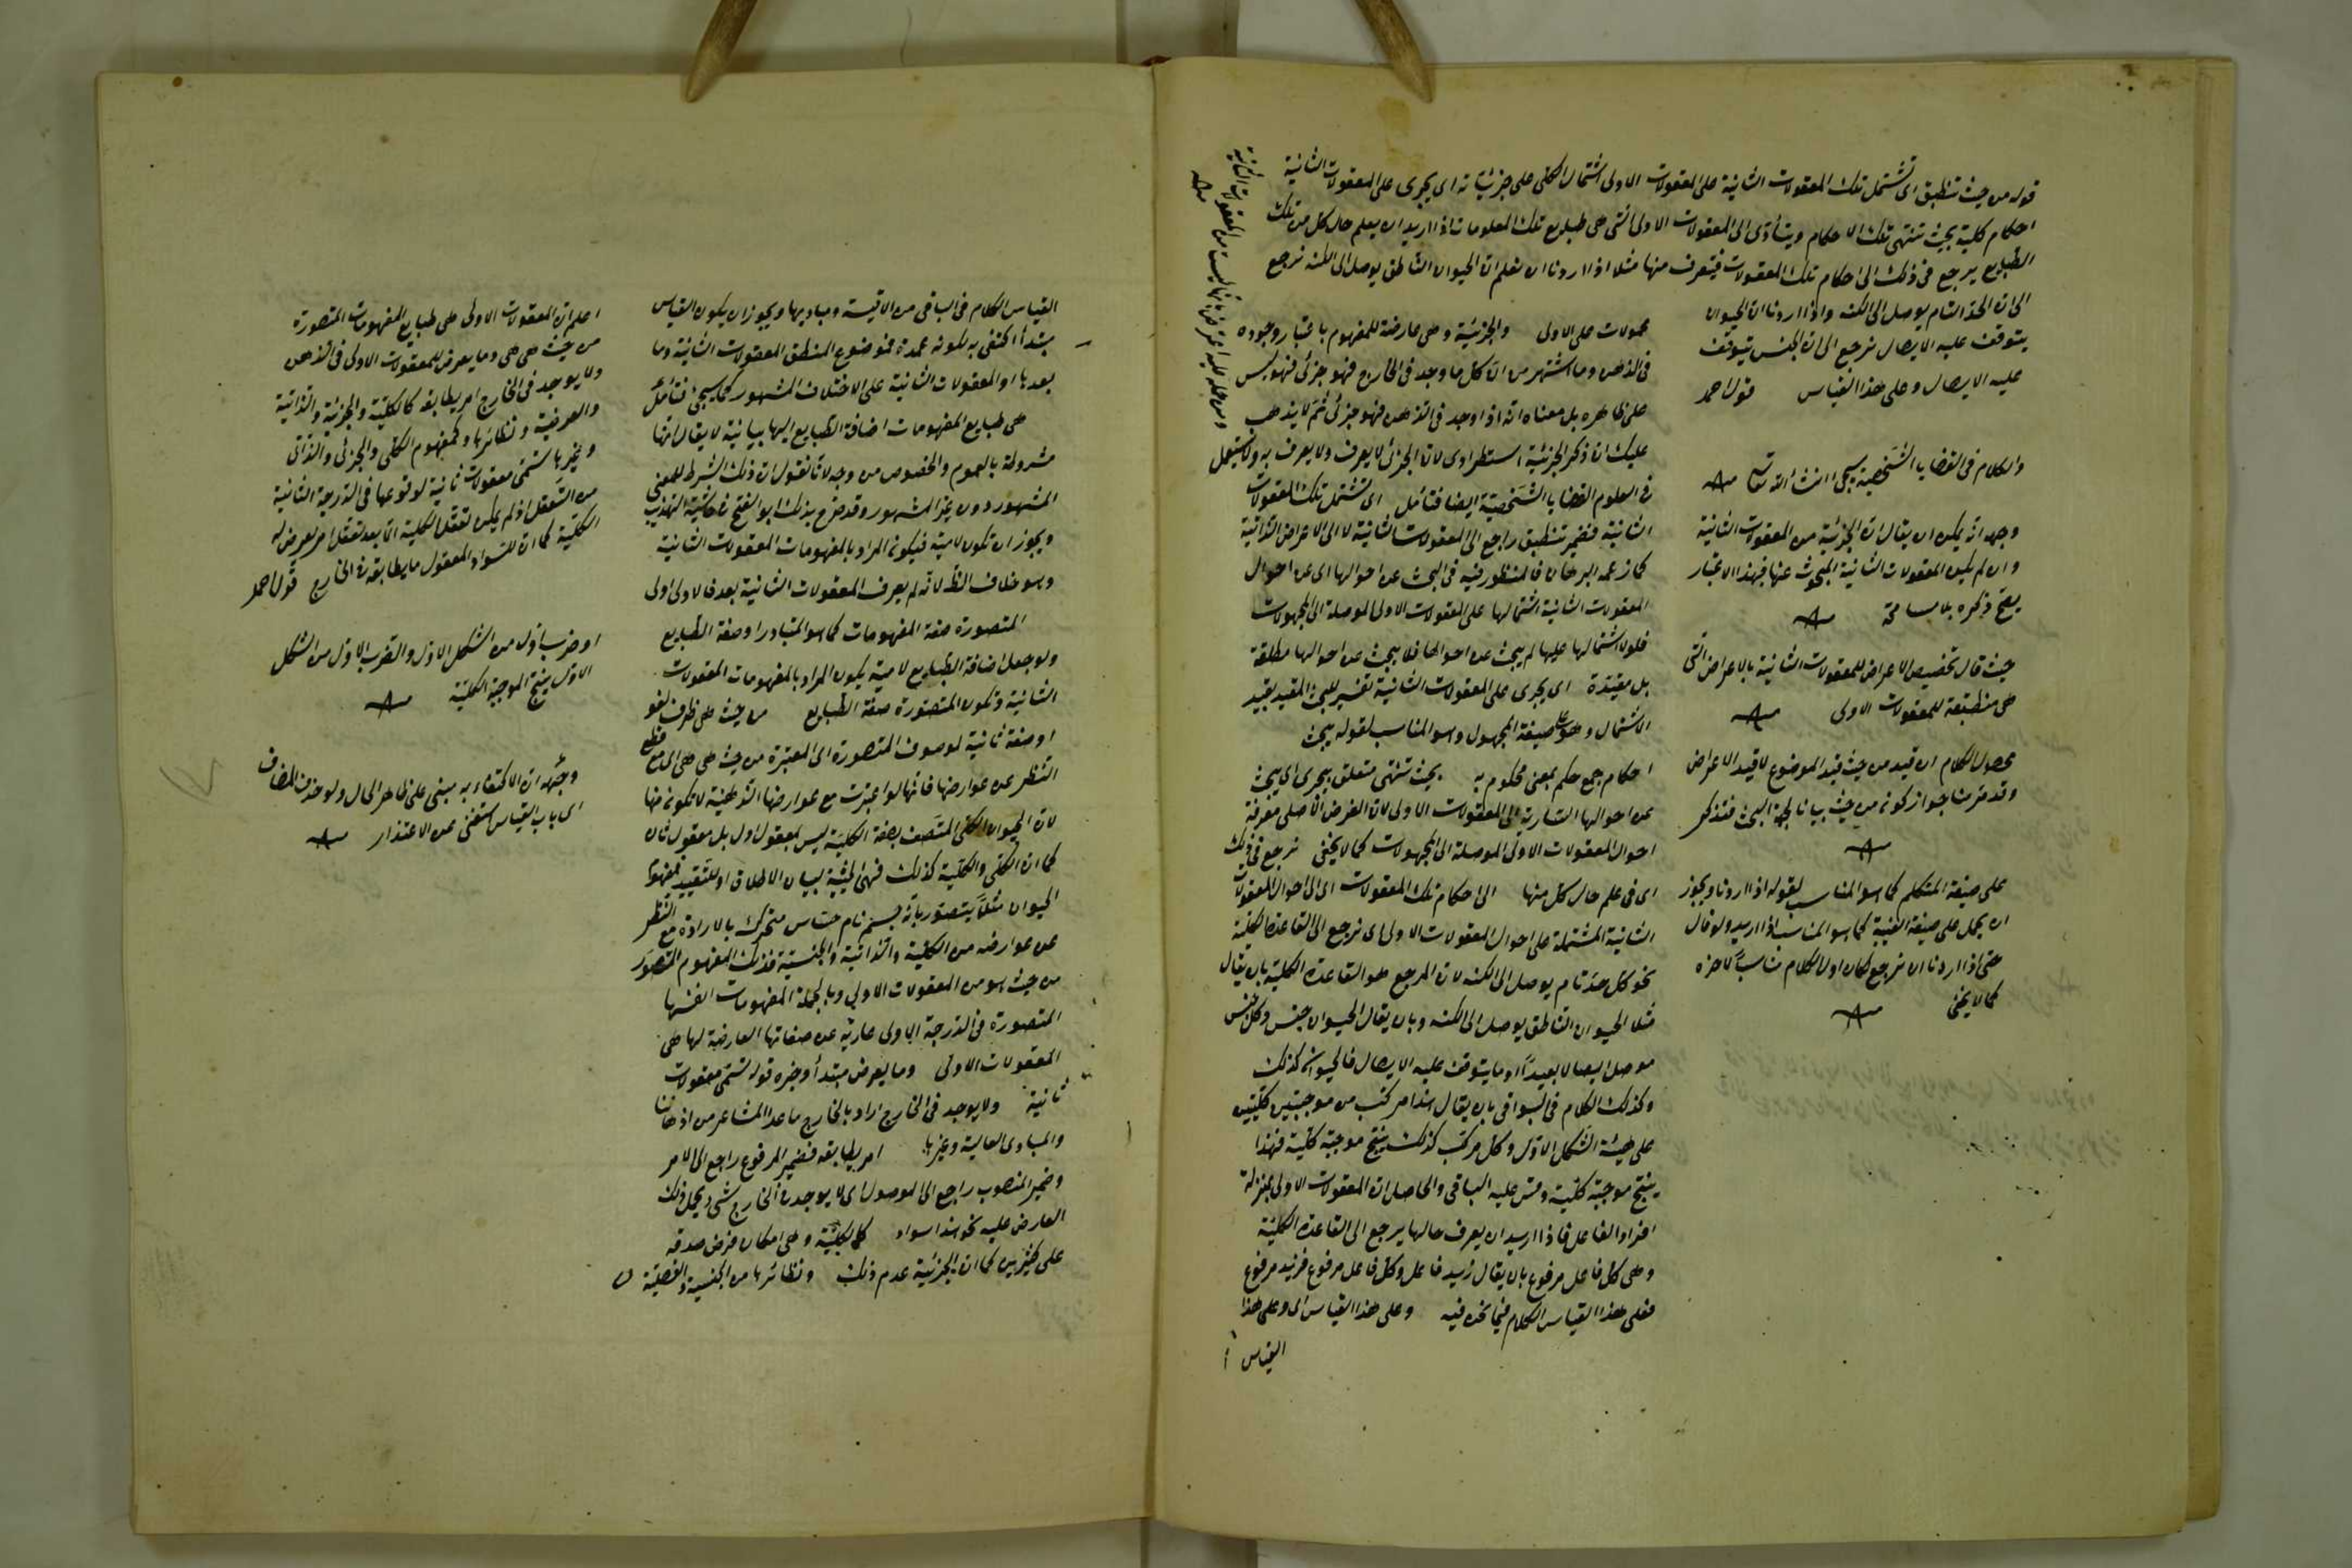 قوله من حيث تنطبق اى تشتمل تلك المعقولات الثانية على المعقولات الاولى اشتمال الكلى على جزئياته اى يجرى على المعقولات الثانية
احكام كلية بحيث تنتهى تلك الاحكام ويتأدى الى المعقولات الاولى التى هى طبايع تلك المعلومات اذا اريد ان يعلم حال كل من تلك
الطبايع يرجع فى ذلك الى احكام تلك المعقولات فيتعرف منها مثلا اذا اردنا ان نعلم ان الحيوان الناطق يوصل الى الكنه نرجع
الى ان الحد التام يوصل الى الكنه واذا اردنا ان الحيوان
يتوقف عليه الايصال نرجع الى ان الجنس يتوقف
عليه الايصال وعلى هذا القياس قول احمد
والكلام فى القضايا الشخصية سيجئ انشاء الله تعالى
وجهه انه يمكن ان يقال ان الجزئية من المعقولات الثانية
وان لم يكن المعقولات الثانية المبحوث عنها فبهذا الاعتبار
يصح ذكره بلا مسامحة
حيث قال تخصيص الاعراض للمعقولات الثانية بالاعراض التى
هى منطبقة للمعقولات الاولى
محصول الكلام ان قيد من حيث قيد الموضوع لا قيد الاعراض
وقد مر منا جواز كونه من حيث بيانا لجهة البحث فتذكر
على صيغة المتكلم كما هو المناسب لقوله اذا اردنا ويجوز
ان يحمل على صيغة الغيبة كما هو المناسب اذا اريد ولو قال
حتى اذا اردنا ان نرجع لكان اول الكلام مناسبا لآخره
كما لا يخفى
محمولات على الاولى والجزئية وهى عارضة للمفهوم باعتبار وجوده
فى الذهن وما اشتهر من ان كل ما وجد فى الخارج فهو جزئى فهو ليس
على ظاهره بل معناه انه اذا وجد فى الذهن فهو جزئى ثم لا يذهب
عليك ان ذكر الجزئية استطرادى لان الجزئى لا يعرف ولا يعرف به ولا يستعمل
فى العلوم القضايا الشخصية ايضا فتأمل اى تشتمل تلك المعقولات
الثانية فضمير تنطبق راجع الى المعقولات الثانية لا الى الاعراض الذاتية
كما زعمه البرهان فالمنظور فيه فى البحث عن احوالها اى عن احوال
المعقولات الثانية اشتمالها على المعقولات الاولى الموصلة الى المجهولات
فلولا اشتمالها عليها لم يبحث عن احوالها فلا يبحث عن احوالها مطلقة
بل مقيدة اى يجرى على المعقولات الثانية تفسير للبحث المقيد بقيد
الاشتمال وهو على صيغة المجهول وهو المناسب لقوله يبحث
احكام جمع حكم بمعنى محكوم به بحيث تنتهى متعلق بيجرى اى يبحث
عن احوالها السارية الى المعقولات الاولى لان الغرض الاصلى معرفة
احوال المعقولات الاولى الموصلة الى المجهولات كما لا يخفى نرجع فى ذلك
اى فى علم حال كل منها الى احكام تلك المعقولات اى الى احوال المعقولات
الثانية المشتملة على احوال المعقولات الاولى اى نرجع الى القاعدة الكلية
نحو كل حد تام يوصل الى الكنه لان المرجع هو القاعدة الكلية بان يقال
مثلا الحيوان الناطق يوصل الى الكنه وبان يقال الحيوان جنس وكل جنس
موصل ايصالا بعيدا او ما يتوقف عليه الايصال فالحيوان كذلك
وكذلك الكلام فى البواقى بان يقال هذا مركب من موجبتين كليتين
على هيئة الشكل الاول وكل مركب كذلك ينتج موجبة كلية فهذا
ينتج موجبة كلية وقس عليه الباقى والحاصل ان المعقولات الاولى بمنزلة
افراد الفاعل فاذا اريد ان يعرف حالها يرجع الى القاعدة الكلية
وهى كل فاعل مرفوع بان يقال زيد فاعل وكل فاعل مرفوع فزيد مرفوع
فعلى هذا القياس الكلام فيما نحن فيه وعلى هذا القياس اى وعلى هذا
القياس
القياس الكلام فى الباقى من الاقيسة ومباديها ويجوز ان يكون القياس
مبتدأ اكتفى به لكونه عمدة فموضوع المنطق المعقولات الثانية وما
بعدها او المعقولات الثانية على الاختلاف المشهور كما سيجئ فتأمل
هى طبايع المفهومات اضافة الطبايع اليها بيانية لا يقال انها
مشروطة بالعموم والخصوص من وجه لانا نقول ان ذلك الشرط للمعنى
المشهور دون غير المشهور وقد صرح بذلك ابو الفتح فى حاشية التهذيب
ويجوز ان تكون لامية فيكون المراد بالمفهومات المعقولات الثانية
وهو خلاف الظ لانه لم يعرف المعقولات الثانية بعد فالاولى اولى
المتصورة صفة المفهومات كما هو المتبادر او صفة الطبايع
ولو جعل اضافة الطبايع لامية يكون المراد بالمفهومات المعقولات
الثانية وتكون المتصورة صفة الطبايع من حيث هى ظرف لغو
او صفة ثانية لموصوف المتصورة اى المعتبرة من حيث هى هى اى مع قطع
النظر عن عوارضها فانها لو اعتبرت مع عوارضها الذهنية لا تكون منها
لان الحيوان الكلى المتصف بصفة الكلية ليس بمعقول اول بل معقول ثان
كما ان الكلى والكلية كذلك فهى الحيثية لبيان الاطلاق او للتقييد فمفهوم
الحيوان مثلا يتصور بانه جسم نام حساس متحرك بالارادة مع النظر
عن عوارضه من الكلية والذاتية والجنسية فذلك المفهوم المتصور
من حيث هو من المعقولات الاولى وبالجملة المفهومات انفسها
المتصورة فى الدرجة الاولى عارية عن صفاتها العارضة لها هى
المعقولات الاولى وما يعرض مبتدأ وخبره قوله تسمى معقولات
ثانية ولا يوجد فى الخارج اراد بالخارج ما عدا المشاعر من اذهاننا
والمبادى العالية وغيرها امر يطابقه فضمير المرفوع راجع الى الامر
وضمير المنصوب راجع الى الموصول اى لا يوجد فى الخارج شئ ويحمل ذلك
العارض عليه نحو هذا سواد كالكلية وهى امكان فرض صدقه
على كثيرين كما ان الجزئية عدم ذلك ونظائرها من الجنسية والفصلية
اعلم ان المعقولات الاولى هى طبايع المفهومات المتصورة
من حيث هى هى وما يعرض للمعقولات الاولى فى الذهن
ولا يوجد فى الخارج امر يطابقه كالكلية والجزئية والذاتية
والعرضية ونظائرها وكمفهوم الكلى والجزئى والذاتى
وغيرها تسمى معقولات ثانية لوقوعها فى الدرجة الثانية
من التعقل اذ لم يكن تعقل الكلية الا بعد تعقل امر يعرض له
الكلية كما ان للسواد المعقول ما يطابقه فى الخارج قول احمد
او ضرب اول من الشكل الاول والضرب الاول من الشكل
الاول ينتج الموجبة الكلية
وجهه ان الاكتفاء به مبنى على ظاهر الحال ولو حذف المضاف
اى باب القياس استغنى عن الاعتذار